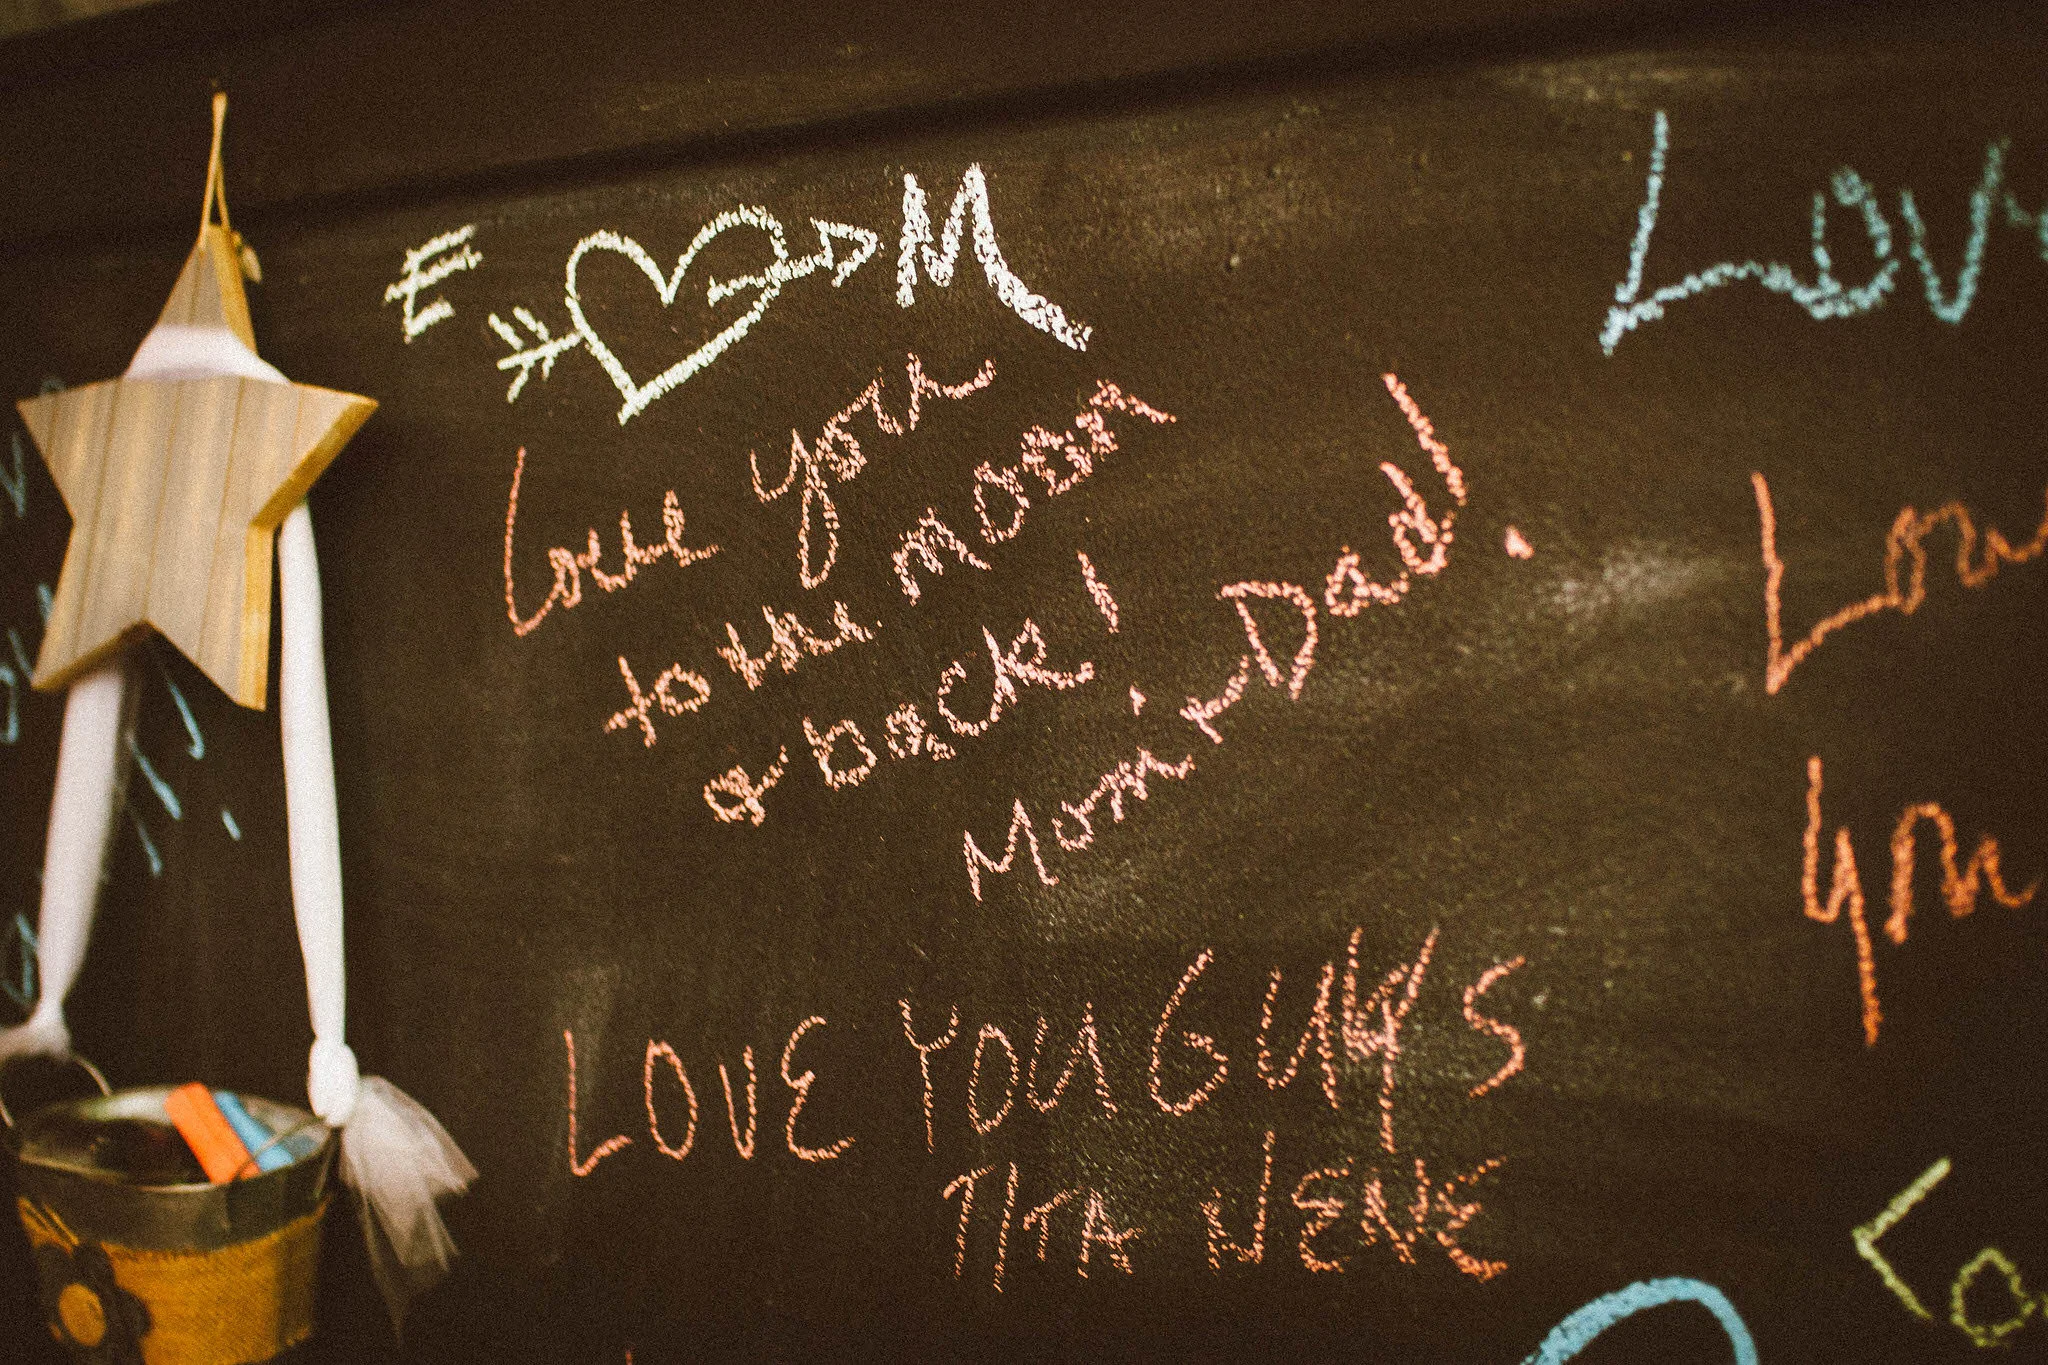 E M
Love you
to the moon
& back!
Mom & Dad!
LOVE YOU GUYS
TITA NENE
Lov
Lov